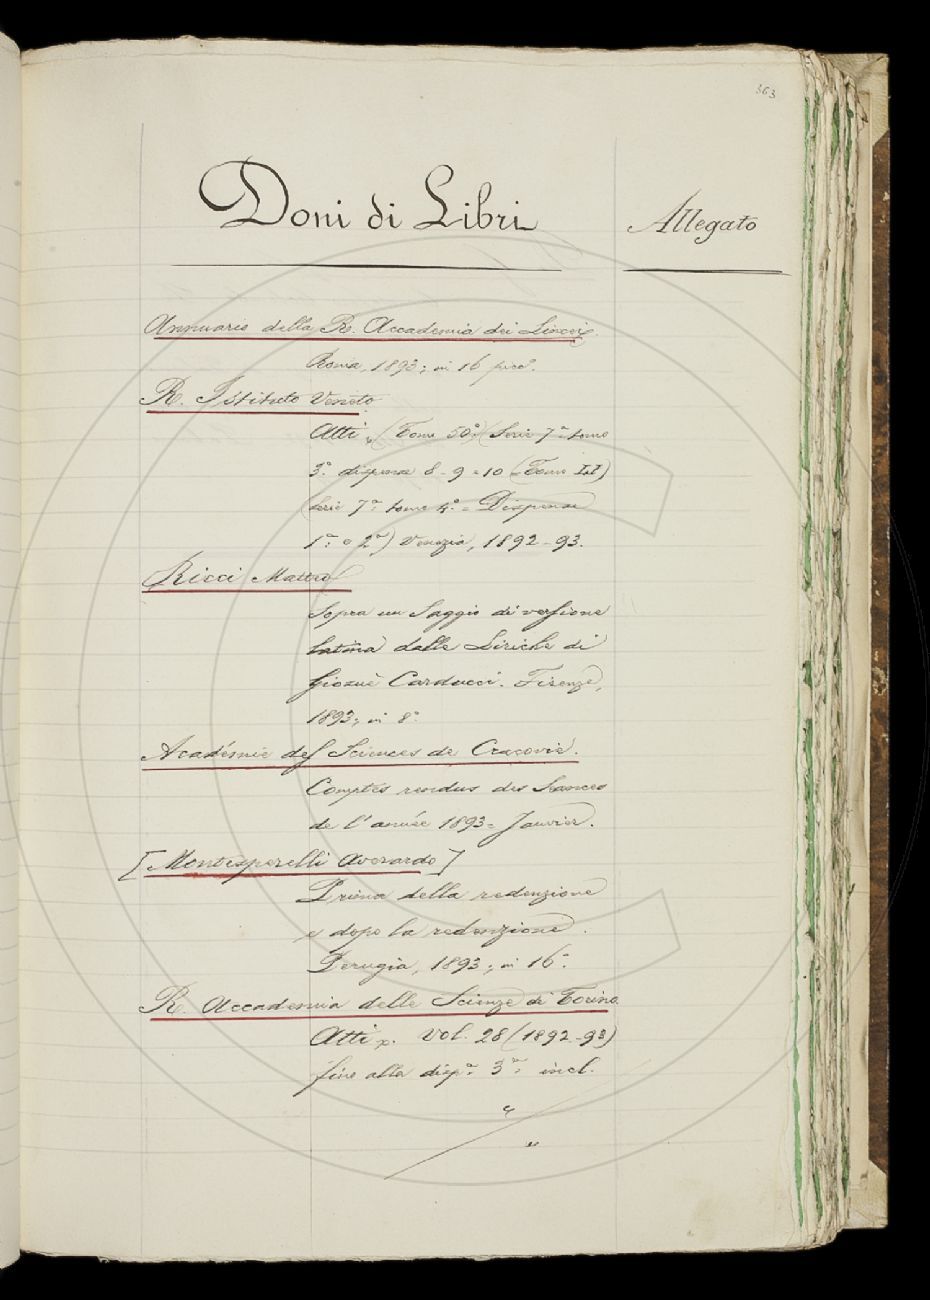 363
Doni di Libri
Allegato
Annuario della R. Accademia dei Lincei.
Roma, 1893; in 16 picc°.
R. Istituto Veneto
Atti (Tomo 50°) (Serie 7ª tomo
3° dispense 8-9-10 (Tomo LI)
serie 7ª tomo 4° = Dispense
1ª e 2ª) Venezia, 1892-93.
Ricci Matteo
Sopra un Saggio di versione
latina delle Liriche di
Giosuè Carducci. Firenze,
1893; in 8°.
Académie des Sciences de Cracovie.
Comptes rendus des Séances
de l'année 1893 = Janvier.
[Montesperelli Averardo]
Prima della redenzione
e dopo la redenzione.
Perugia, 1893; in 16°.
R. Accademia delle Scienze di Torino.
Atti Vol. 28 (1892-93)
fino alla dispª 3ª incl.